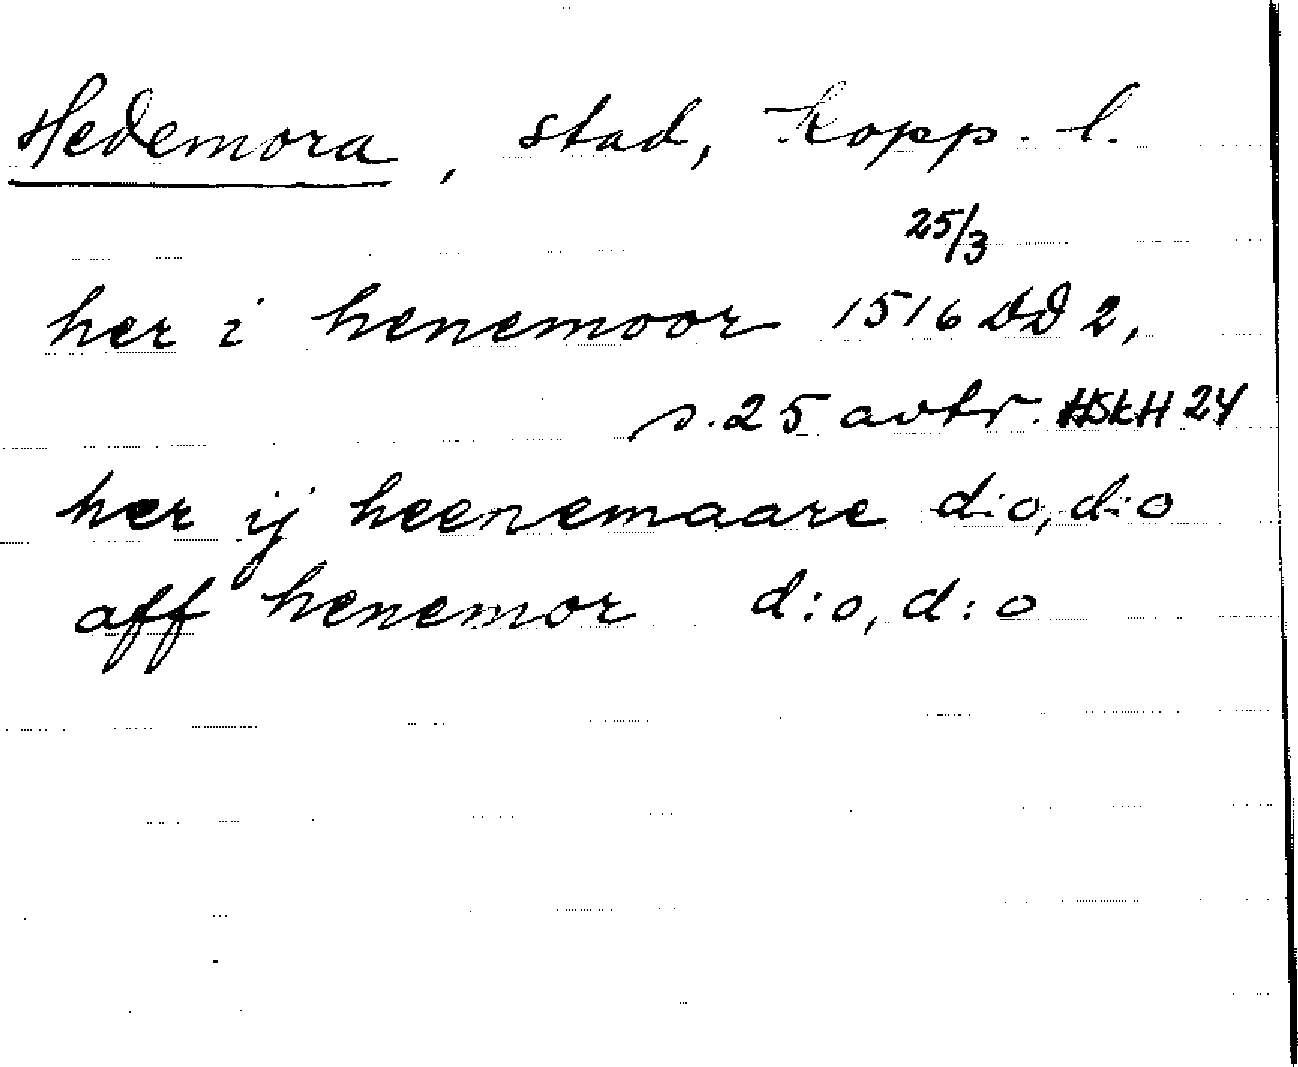 Hedemora, stad, Kopp. l.
25/3
her i henemoor 1516 DD 2,
s. 25 avtr. HSkH 24
her ij heenemaare d:o, d:o
aff henemor d:o, d:o